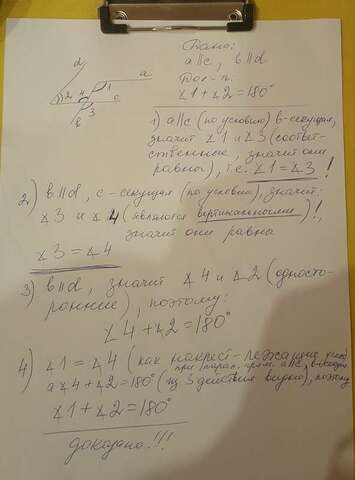 Дано:
a∥c, b∥d
Док-ть:
∠1+∠2=180°
d
a
1
2 4 c
3
b
1) a∥c (по условию) b-секущая,
значит ∠1 и ∠3 (соответ-
ственные, значит они
равны), т.е. ∠1=∠3!
2) b∥d, c-секущая (по условию), значит:
∠3 и ∠4 (являются вертикальными)!,
значит они равны
∠3=∠4
3) b∥d, значит ∠4 и ∠2 (односто-
ронние), поэтому:
∠4+∠2=180°
4) ∠1=∠4 (как накрест-лежащие
при парал. прям. a∥c,
а ∠4+∠2=180° (из 3 действия видно), поэтому
∠1+∠2=180°
доказано!!!